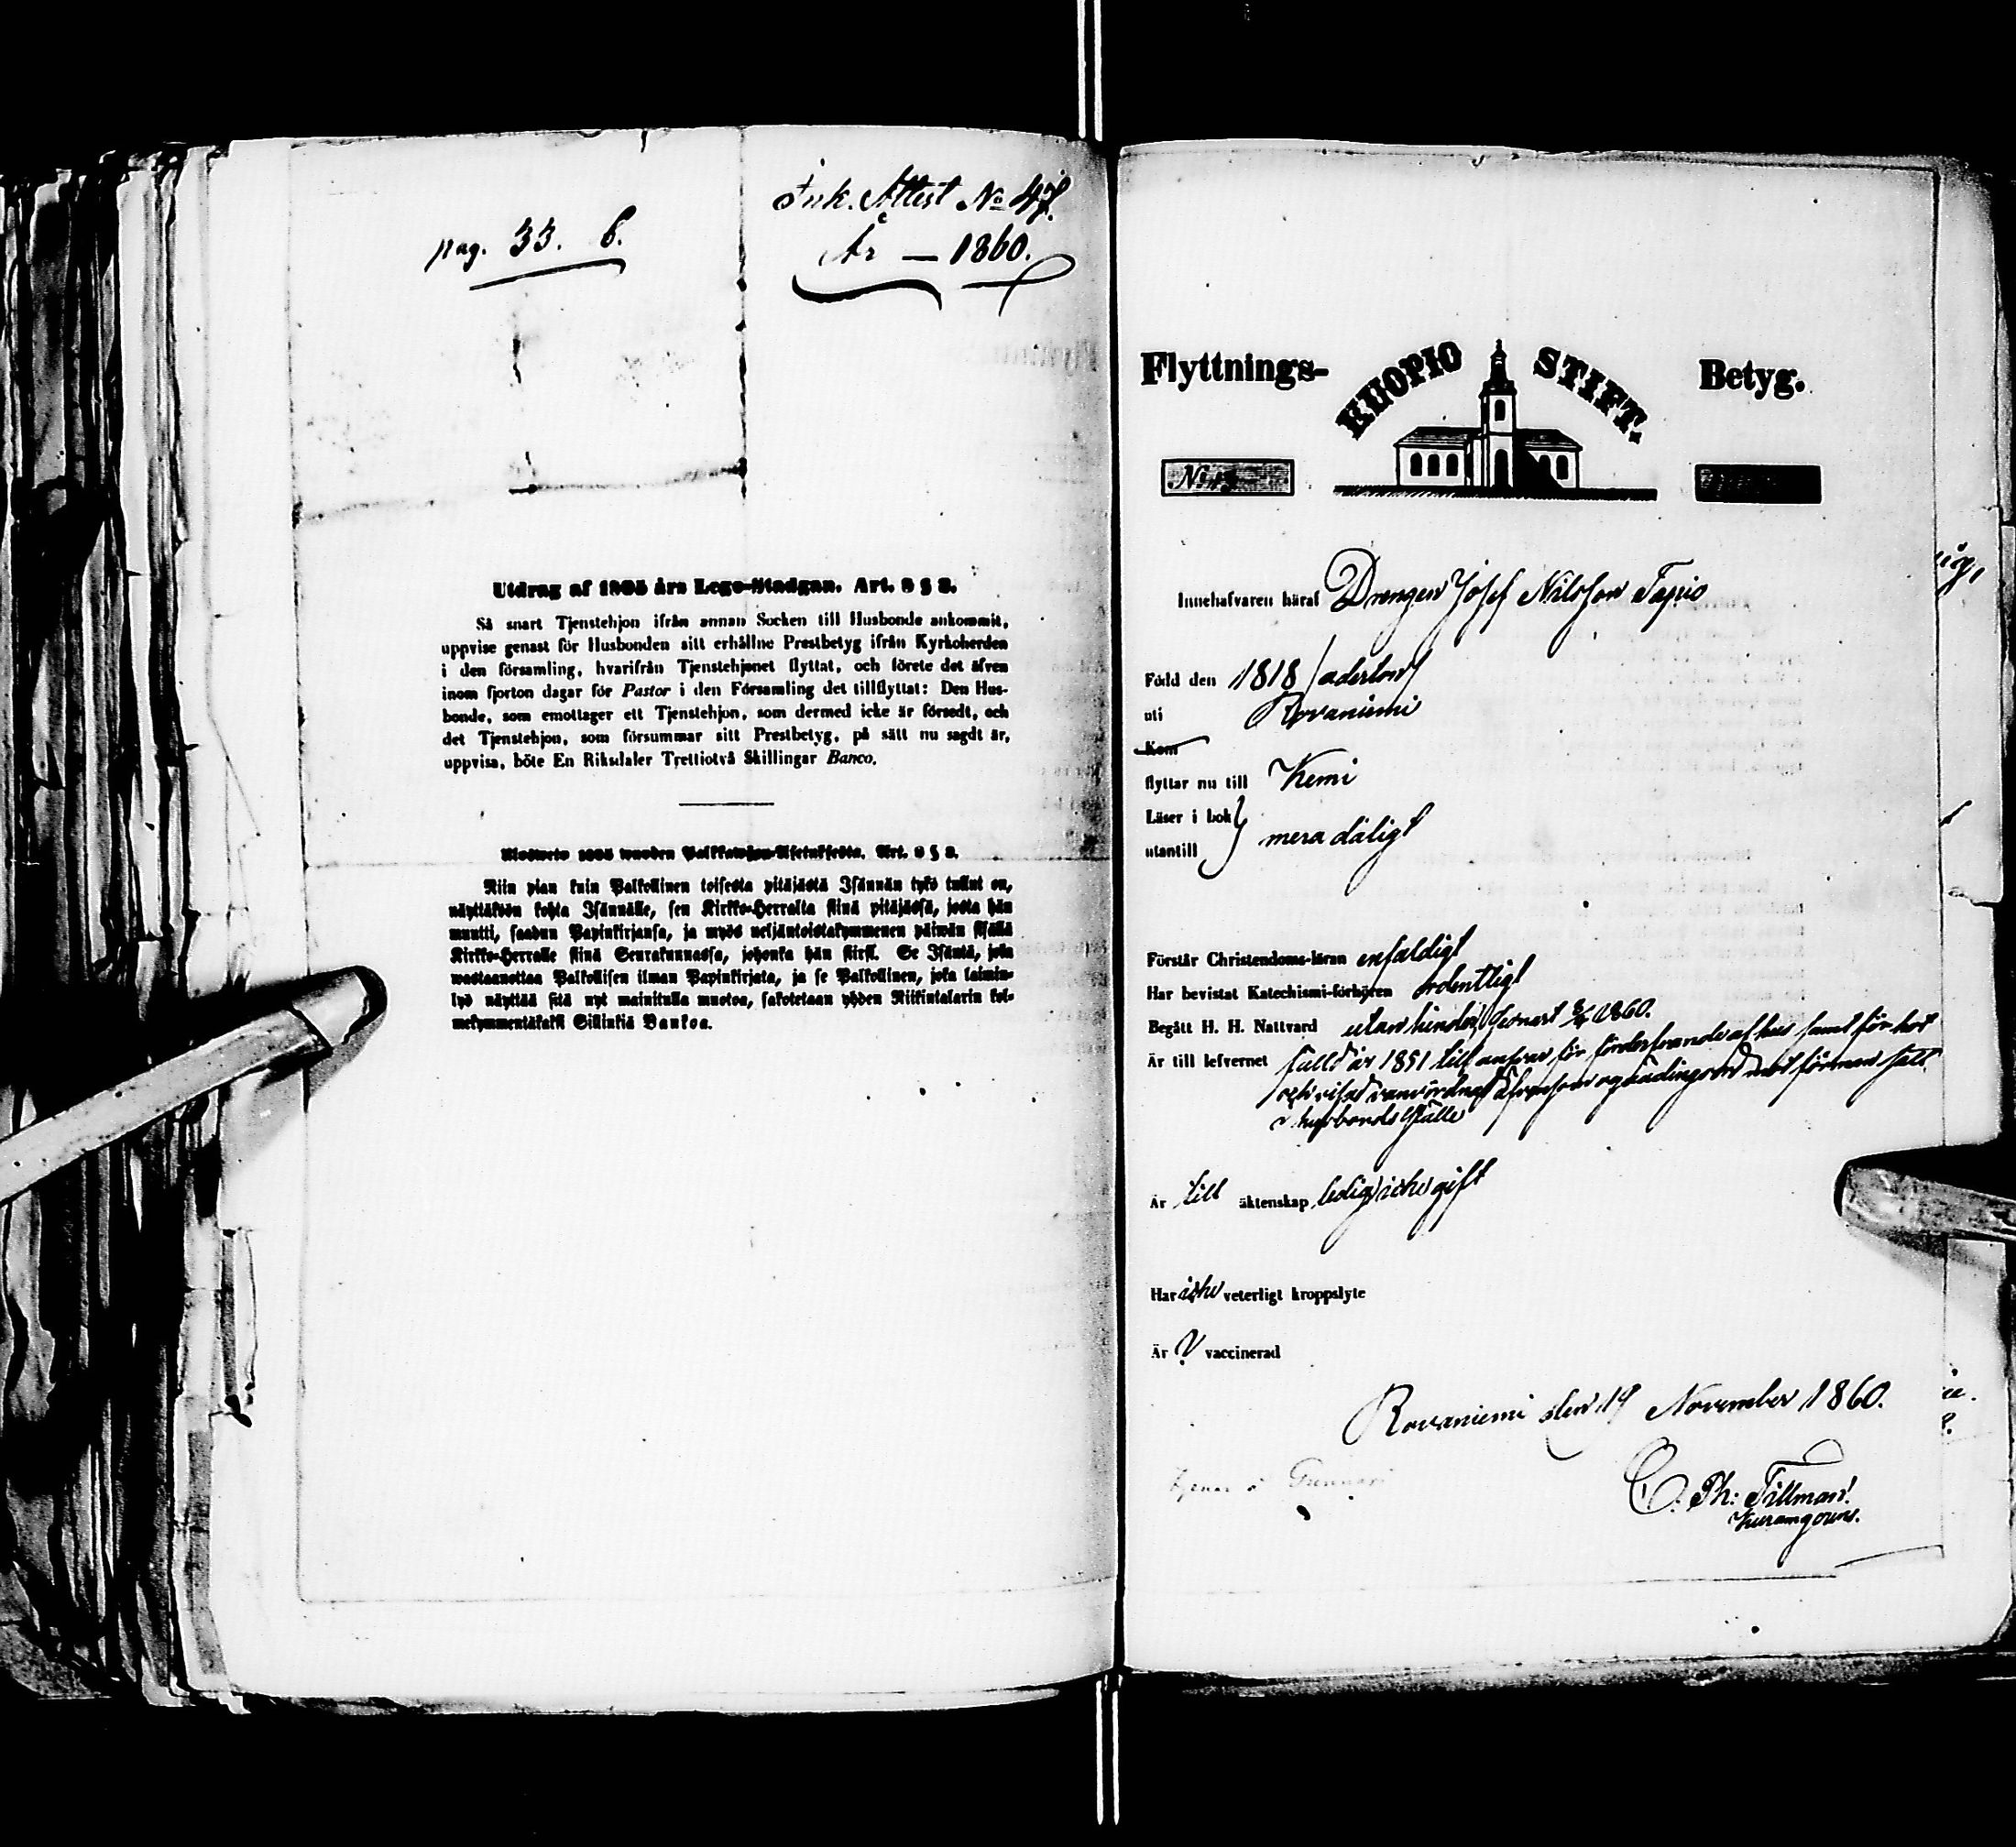 pag. 33. 6.
Ink. Attest No 47.
År — 1860.
Utdrag af 1805 års Lego-Stadgan. Art. 8 § 8.
Så snart Tjenstehjon ifrån annan Socken till Husbonde ankommit,
uppvise genast för Husbonden sitt erhållne Prestbetyg ifrån Kyrkoherden
i den församling, hvarifrån Tjenstehjonet flyttat, och förete det äfven
inom fjorton dagar för Pastor i den Församling det tillflyttat: Den Hus-
bonde, som emottager ett Tjenstehjon, som dermed icke är försedt, och
det Tjenstehjon, som försummar sitt Prestbetyg, på sätt nu sagdt är,
uppvisa, böte En Riksdaler Trettiotvå Skillingar Banco.
Ulosweto 1805 wuoden Palkkawäen-Asetuksesta. Art. 8 § 8.
Niin pian kuin Palkollinen toisesta pitäjästä Isännän tykö tullut on,
näyttäköön kohta Isännälle, sen Kirkko-Herralta siinä pitäjässä, josta hän
muutti, saadun Papinkirjansa, ja myös neljäntoistakymmenen päiwän sisällä
Kirkko-Herralle siinä Seurakunnassa, johonka hän siirsi. Se Isäntä, joka
wastaanottaa Palkollisen ilman Papinkirjata, ja se Palkollinen, joka laimin-
lyö näyttää sitä nyt mainitulla muotoa, sakotetaan yhden Riikintalarin kol-
mekymmentäkaksi Sillinkiä Bankoa.
Flyttnings- KUOPIO STIFT. Betyg.
No
Innehafvaren häraf Drengen Josef Nilsson Tapio
Född den 1818 /aderton/
uti Rovaniemi
Kom
flyttar nu till Kemi
Läser i bok
utantill } mera dåligt
Förstår Christendoms-läran enfaldigt
Har bevistat Katechismi-förhören ordentligt
Begått H. H. Nattvard utan hinder, senast 8/4 1860.
Är till lefvernet fälld år 1851 till ansvar för förderfvande af hus samt för hot
och visad vanvördnad äfvensom ovädingsord mot förman samt
i husbonds ställe
Är till äktenskap ledig icke gift
Har icke veterligt kroppslyte
Är ? vaccinerad
Rovaniemi den 19 November 1860.
C. Ph: Tillman.